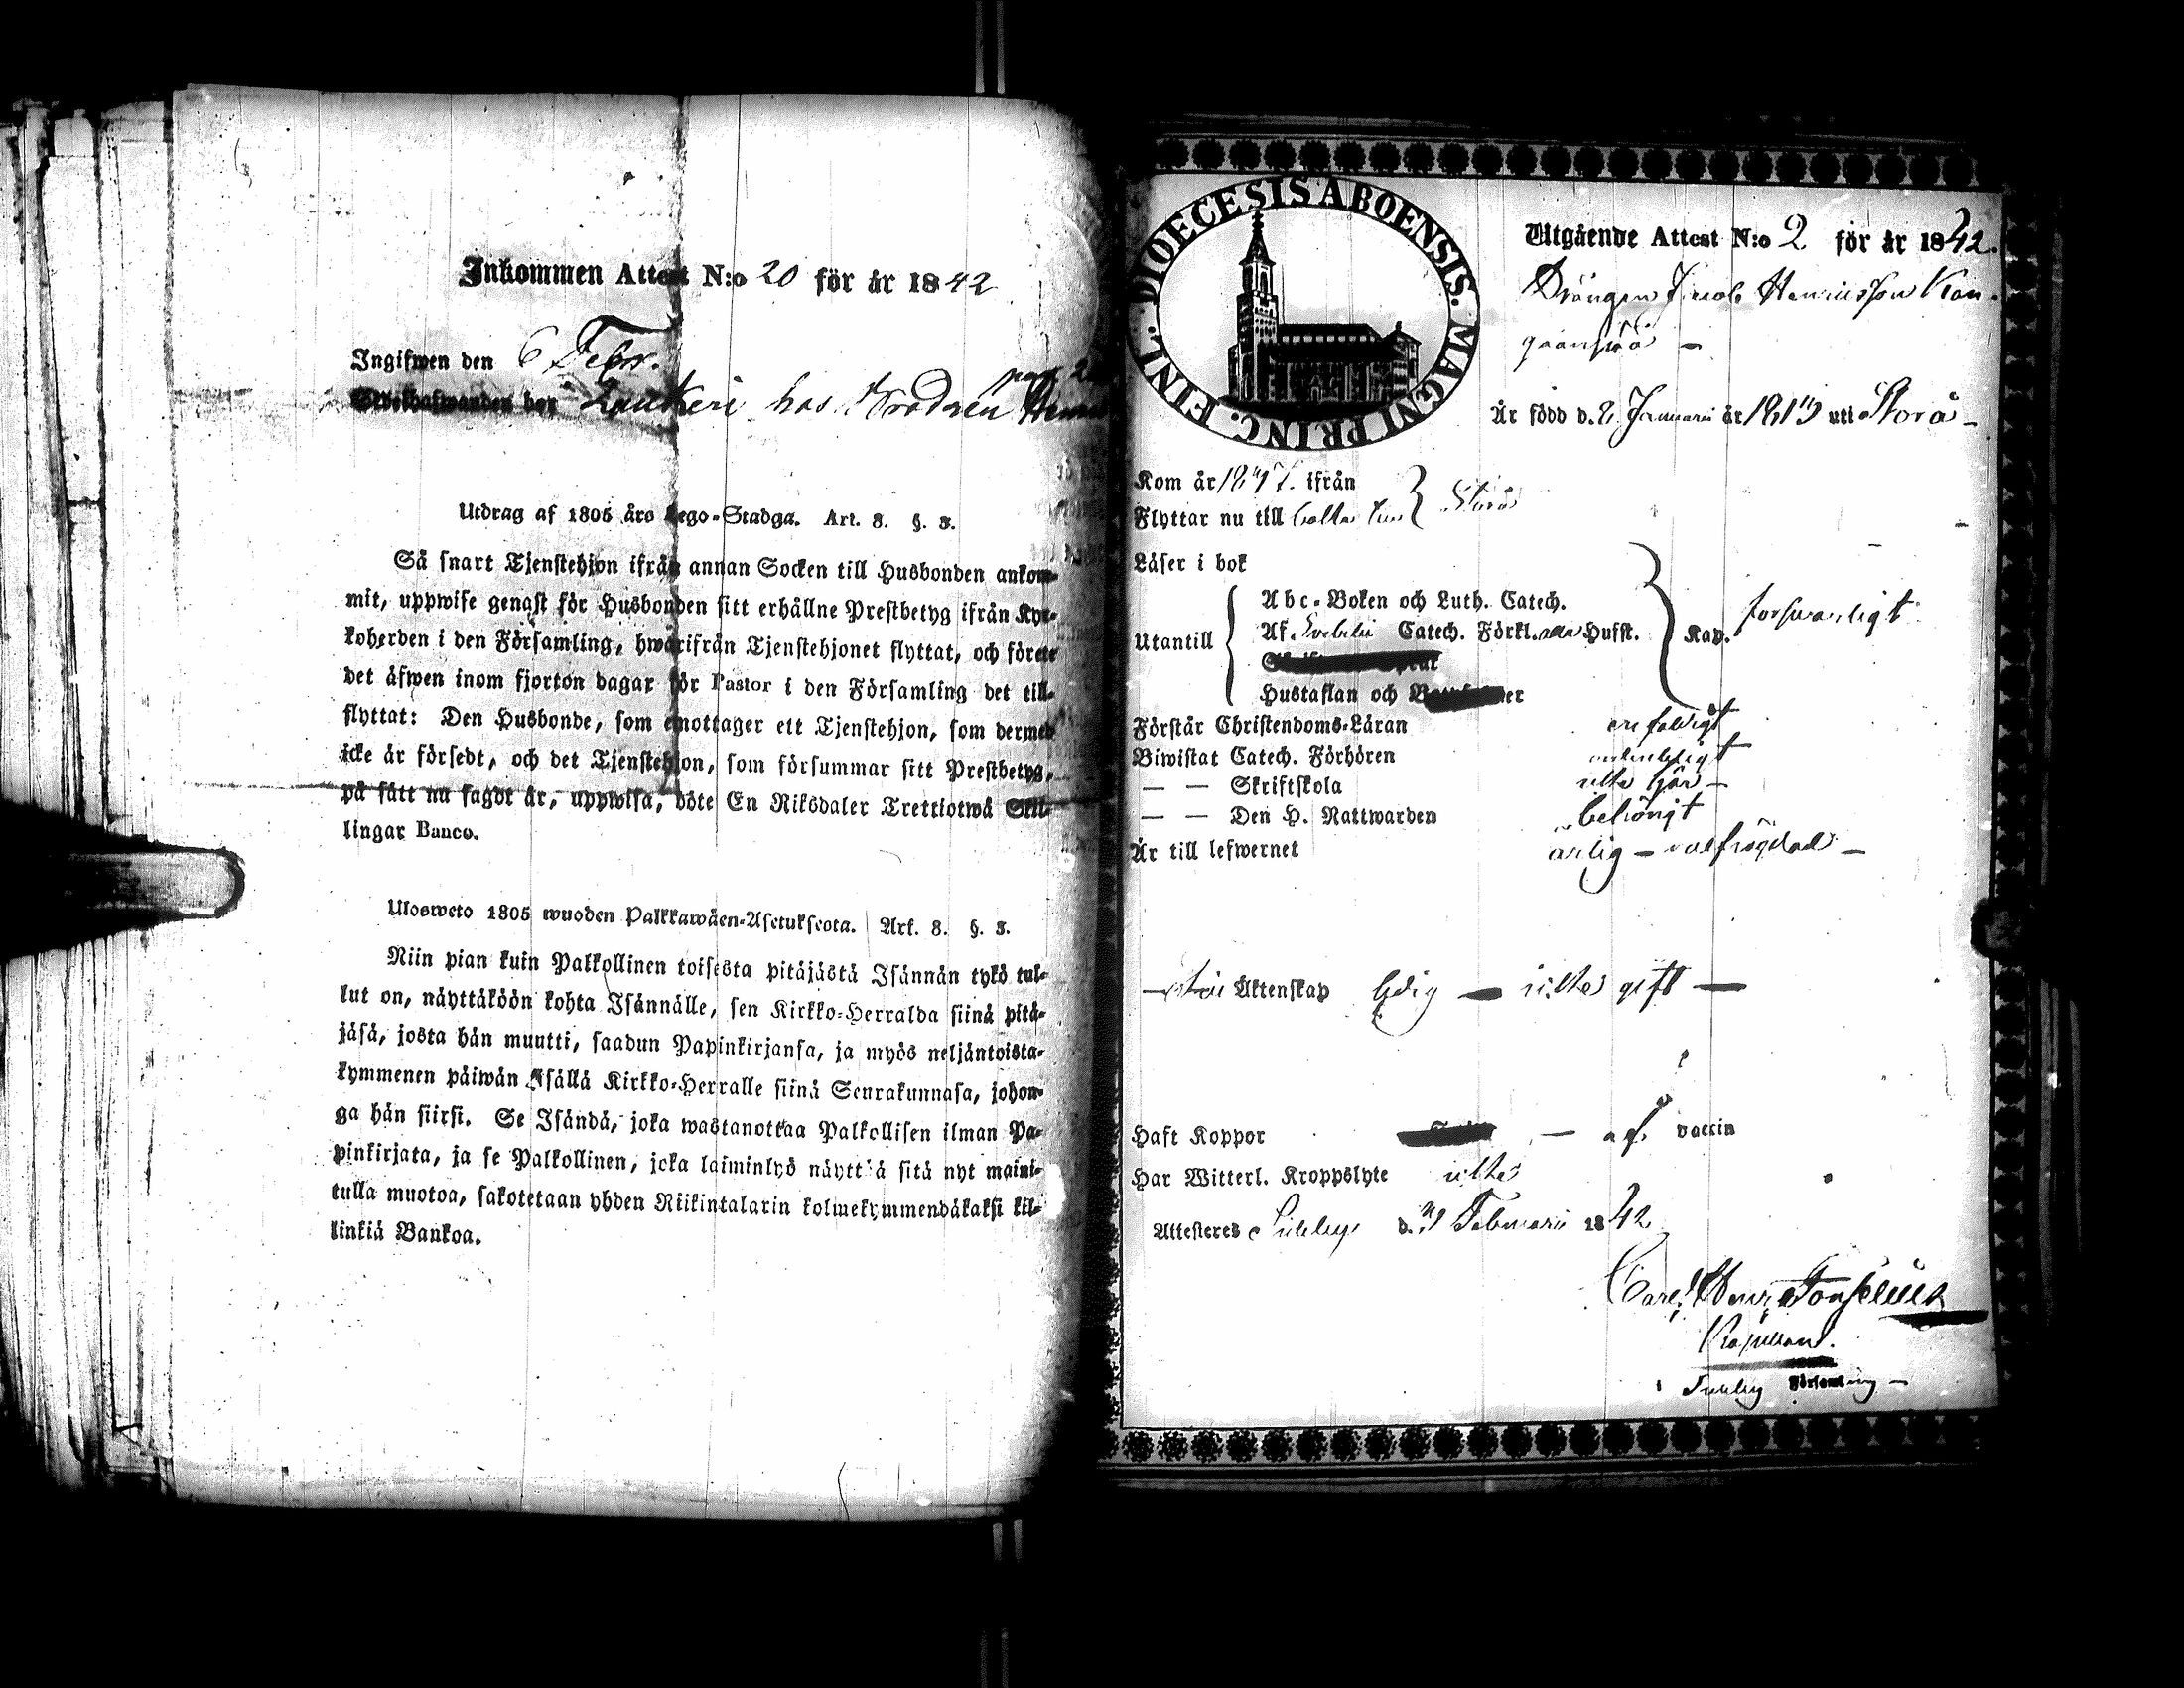 Inkommen Attest N:o 20 för år 1842
Ingifwen den 6 Febr.
hos Brodren
Utdrag af 1805 års Lego-Stadga. Art. 8. §. 3.
Så snart Tjenstehjon ifrån annan Socken till Husbonden ankom-
mit, uppwise genast för Husbonden sitt erhållne Prestbetyg ifrån Kyr-
koherden i den Församling, hwarifrån Tjenstehjonet flyttat, och förete
det äfwen inom fjorton dagar för Pastor i den Församling det till-
flyttat: Den Husbonde, som emottager ett Tjenstehjon, som dermed
icke är försedt, och det Tjenstehjon, som försummar sitt Prestbetyg,
på sätt nu sagdt är, uppwisa, böte En Riksdaler Trettiotwå Skil-
lingar Banco.
Ulosweto 1805 wuoden Palkkawäen-Asetuksesta. Art. 8. §. 3.
Niin pian kuin Palkollinen toisesta pitäjästä Isännän tykö tul-
lut on, näyttäköön kohta Isännälle, sen Kirkko-Herralda siinä pitä-
jäsä, josta hän muutti, saadun Papinkirjansa, ja myös neljäntoista-
kymmenen päiwän sisällä Kirkko-Herralle siinä Seurakunnasa, johon-
ga hän siirsi. Se Isändä, joka wastanottaa Palkollisen ilman Pa-
pinkirjata, ja se Palkollinen, joka laiminlyö näyttää sitä nyt maini-
tulla muotoa, sakotetaan yhden Riikintalarin kolmekymmendäkaksi kil-
linkiä Bankoa.
DIOECESIS ABOENSIS. MAGNI PRINC. FINL.
Utgående Attest N:o 2 för år 1842.
Drängen Jacob Henricsson Kan-
Är född d. 8 Januarii år 1813 uti Storå
Kom år ifrån
Flyttar nu till Storå
Läser i bok
Abc-Boken och Luth. Catech.
Utantill Af Svebelii Catech. Förkl. Husst. Kap. forsvarligt
Hustaflan och
Förstår Christendoms-Läran enfaldigt
Biwistat Catech. Förhören ordentligt
— — Skriftskola
— — Den H. Nattwarden behörigt
Är till lefwernet ärlig — välfrägdad —
Äktenskap ledig — icke gift —
Haft Koppor — af vaccin
Har Witterl. Kroppslyte icke
Attesteres d. 3 Februarii 1842
Carl Henr.
Kapellan.
Församling —